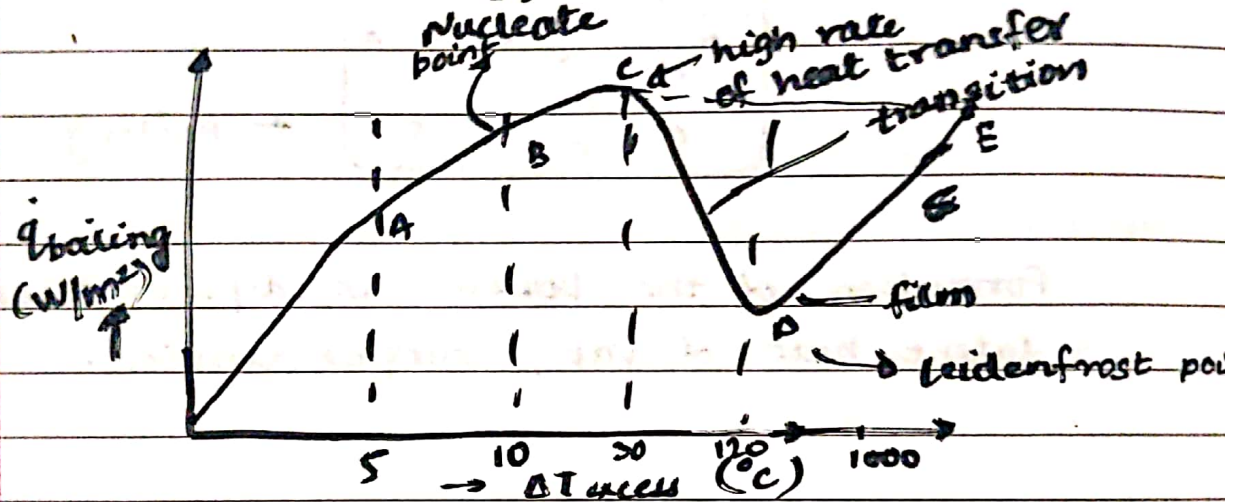 Nucleate
point
C
high rate
of heat transfer
transition
B
E
A
q̇boiling
(W/m²)
film
D
Leidenfrost poi
5 10 30 120 1000
→ ΔT excess (°C)